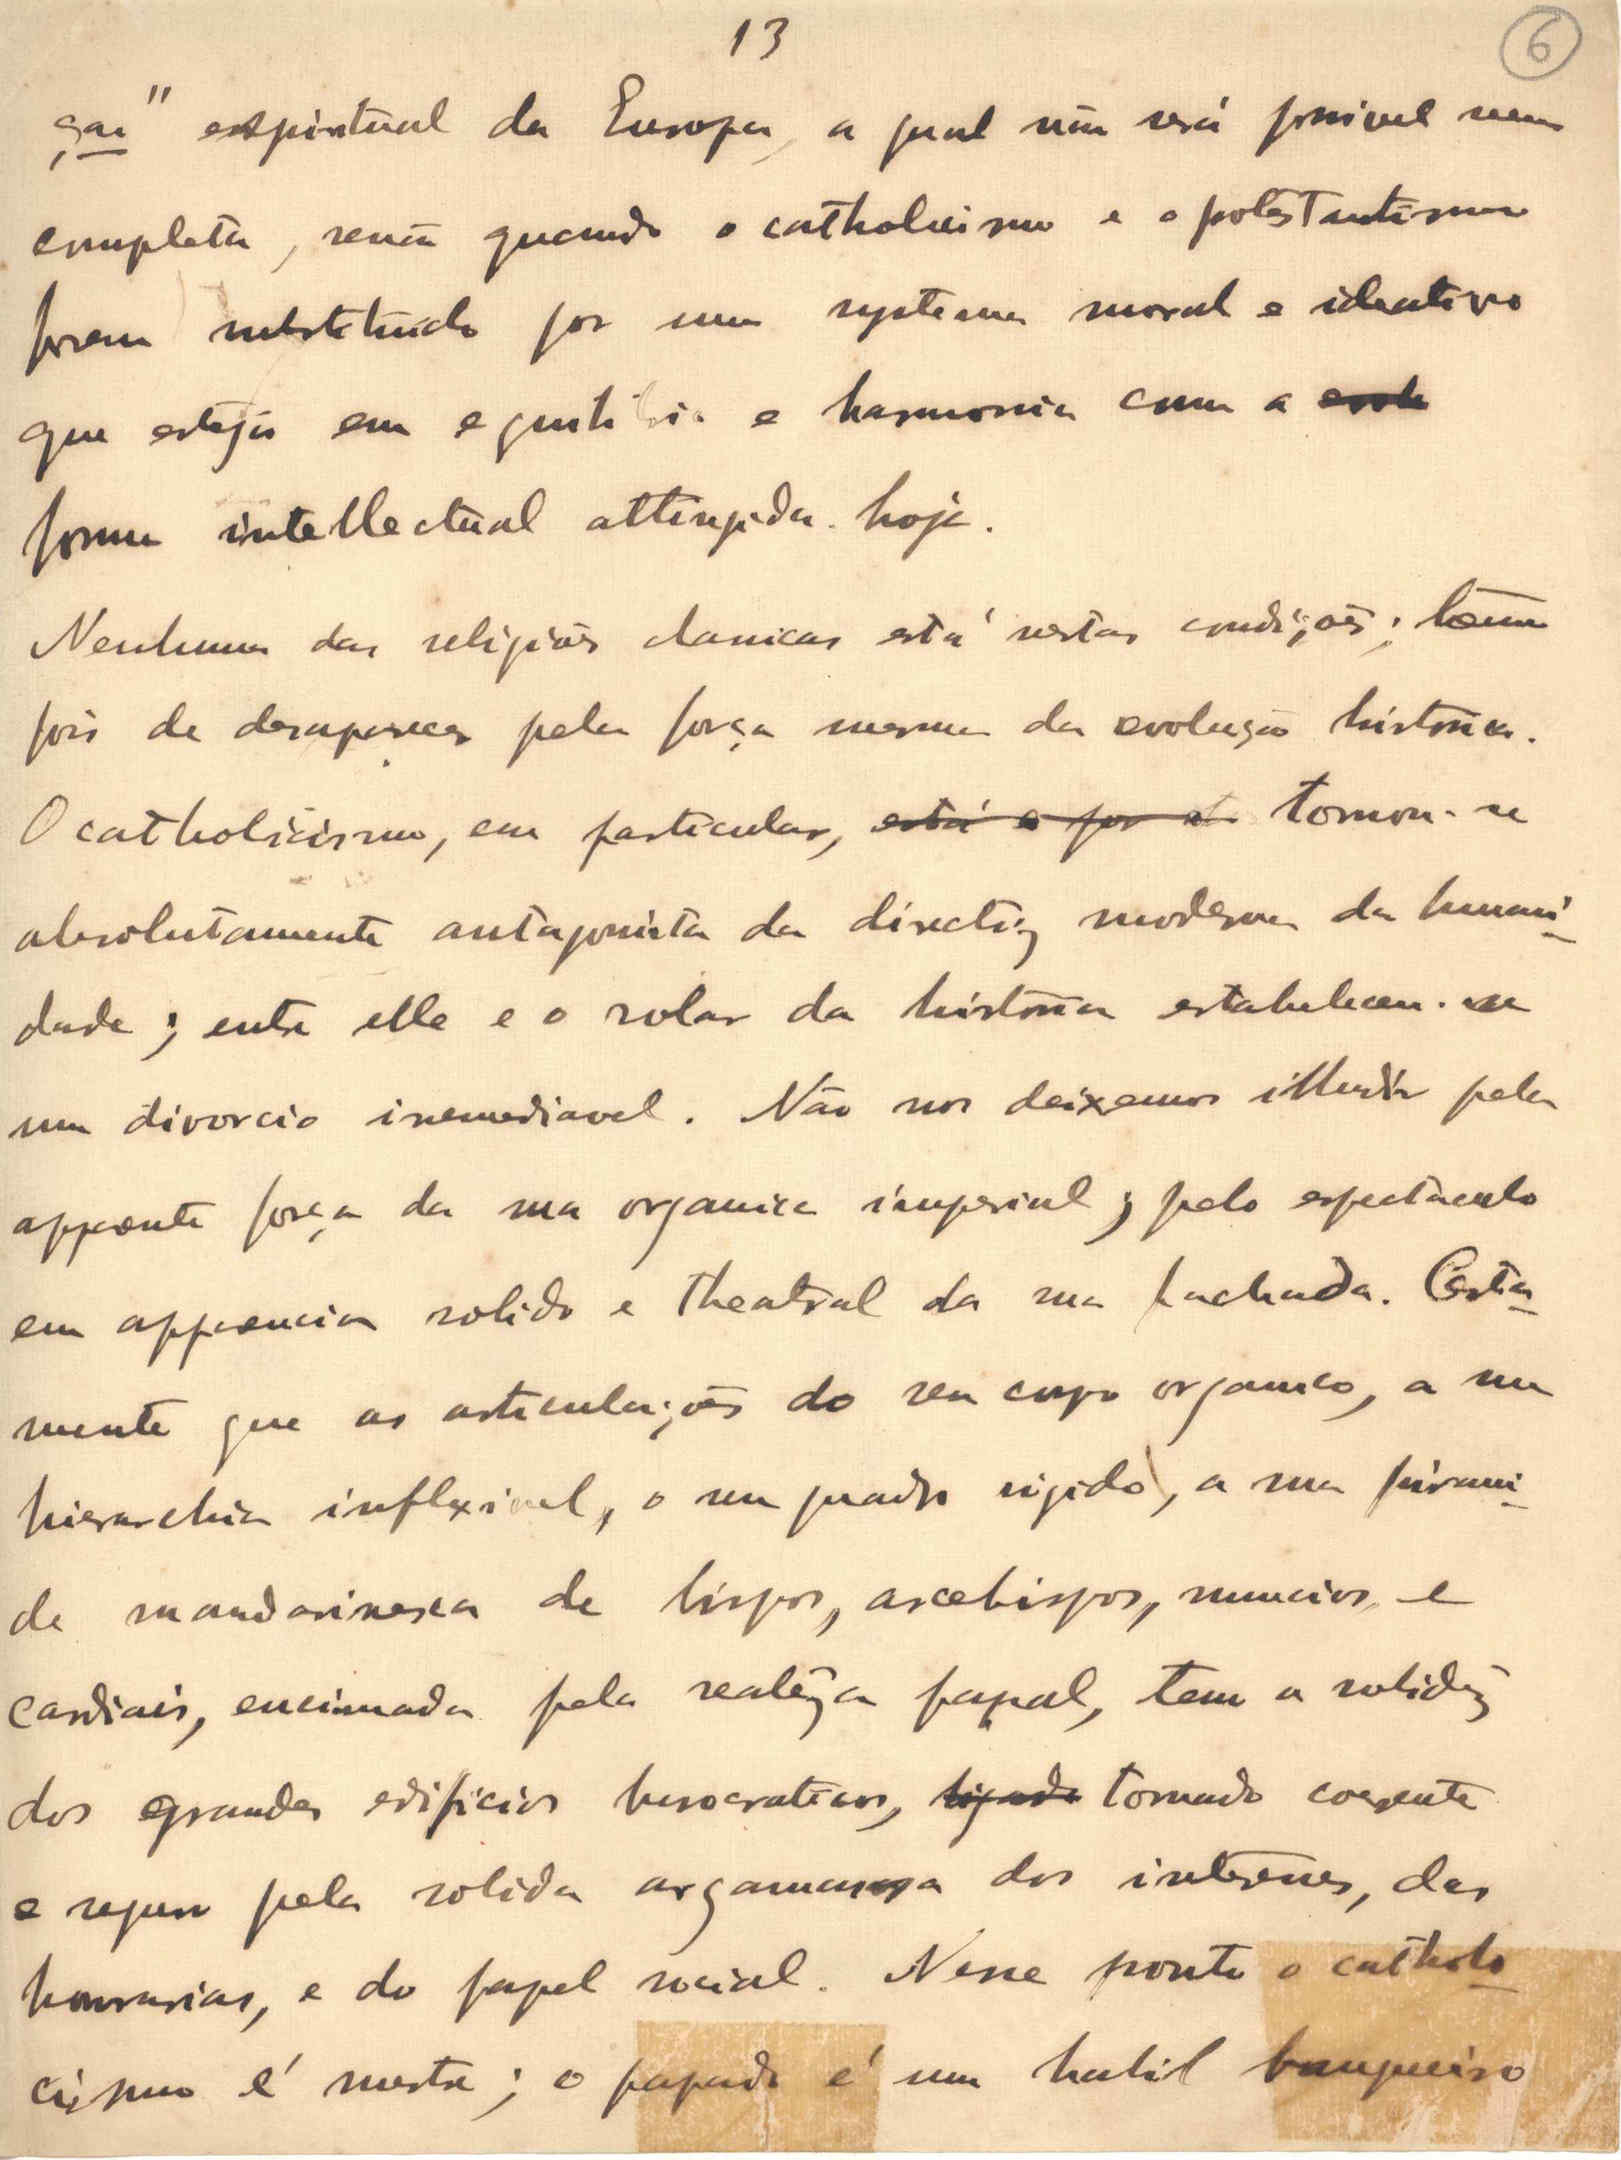 13
6
ção" espiritual da Europa, a qual não será possivel nem
completa, senão quando o catholicismo e o potestantismo
forem substituido por um systema moral e ideativo
que esteja em equilibrio e harmonia com a evolu
forma intellectual attingida hoje.
Nenhuma das religiões classicas está nestas condições; teem
pois de desapparecer pela força mesma da evolução historica.
O catholicismo, em particular, está e por st tornou-se
absolutamente antagonista da directriz moderna da humani-
dade; entre elle e o rolar da historia estabeleceu-se
um divorcio irremediavel. Não nos deixemos illudir pela
apparente força da sua organica imperial; pelo espectaculo
em apparencia solido e theatral da sua fachada. Certa-
mente que as articulações do seu corpo organico, a sua
hierarchia inflexivel, o seu quadro rigido, a sua pirami-
de mandarinesca de bispos, arcebispos, nuncios, e
cardiais, encimada pela realeza papal, tem a solidez
dos grandes edificios burocraticos, ligado tornado coerente
e seguro pela solida argamassa dos interesses, das
honrarias, e do papel social. Nesse ponto o catholo-
cismo é mestre; o papado é um habil banqueiro